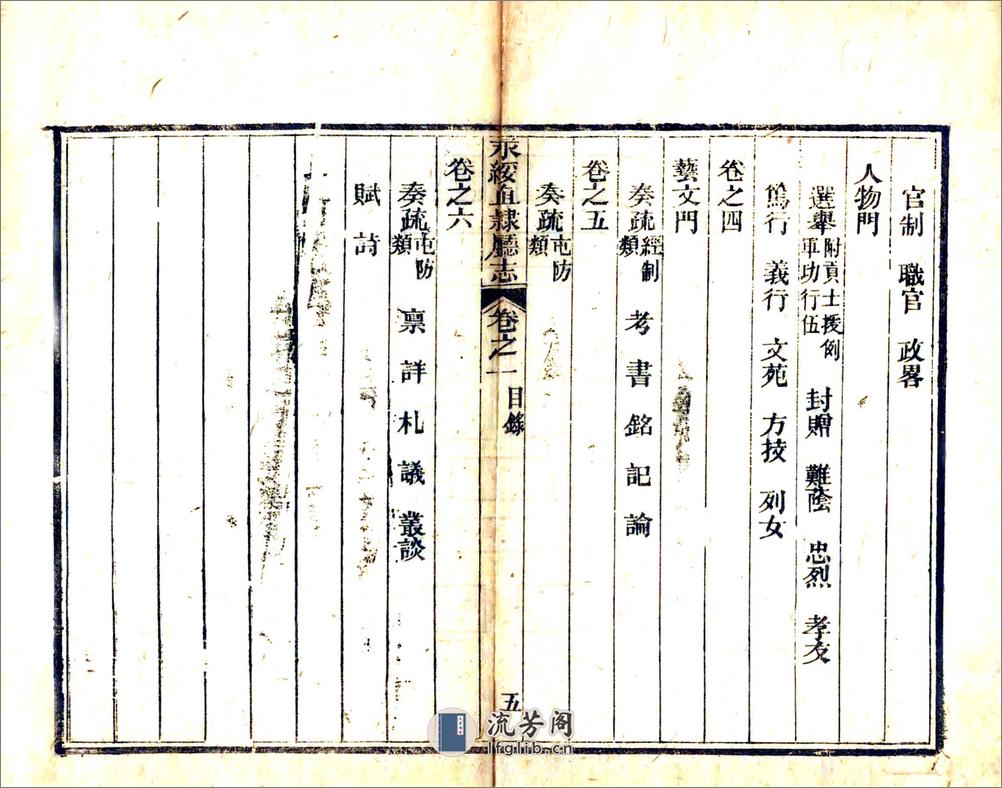 官制 職官 政畧
人物門
選舉附貢士援例軍功行伍 封贈 難蔭 忠烈 孝友
篤行 義行 文苑 方技 列女
卷之四
藝文門
奏疏經制類 考 書 銘 記 論
卷之五
奏疏屯防類
永綏直隸廳志 卷之一 目錄 五
卷之六
奏疏屯防類 稟 詳 札 議 叢談
賦 詩
流芳阁
lfglib.cn